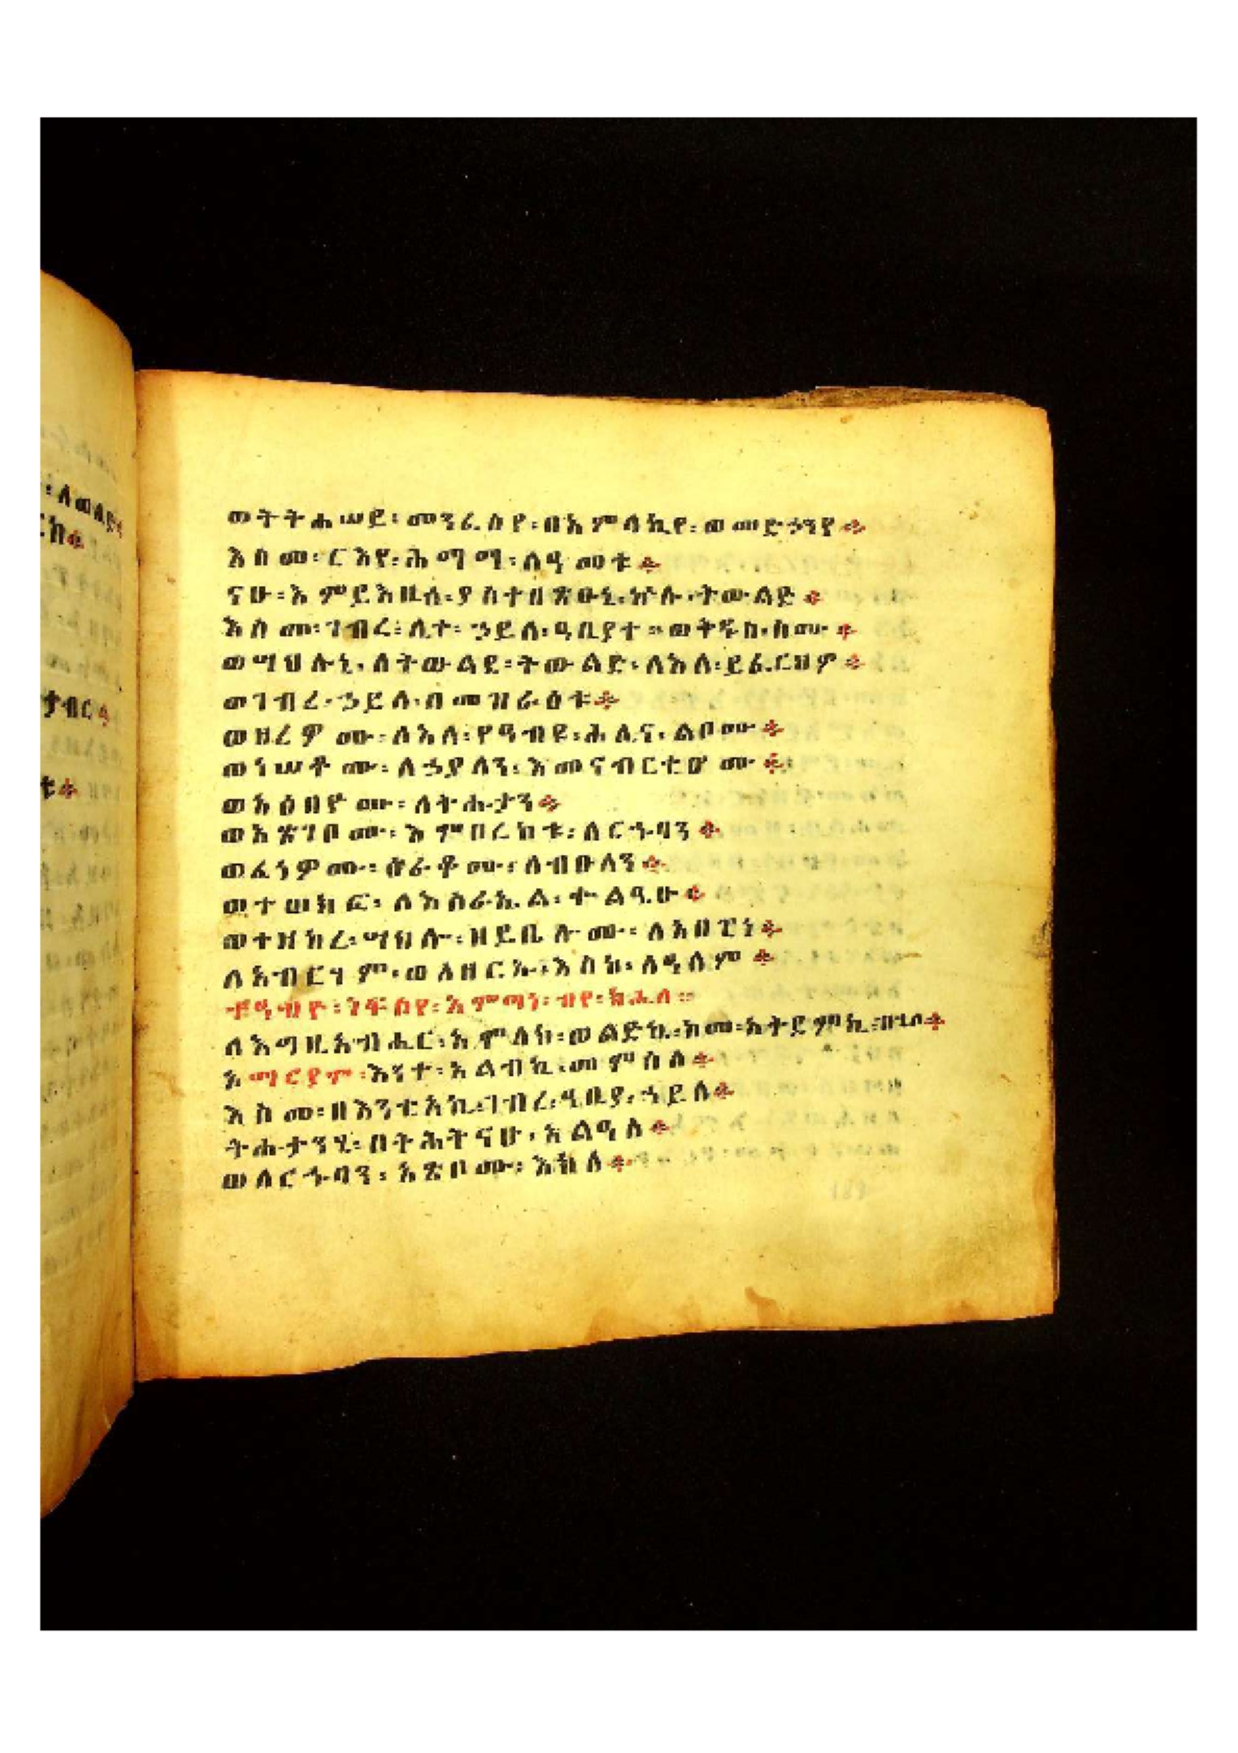 : ለወልድ ።
ርከ ።
ታብር ።
ቱ ።
ወትትሐሠይ ፡ መንፈስየ ፡ በአምላኪየ ፡ ወመድኃንየ ።
እስመ ፡ ርእየ ፡ ሕማማ ፡ ለዓመቱ ።
ናሁ ፡ እምይእዜሰ ፡ ያስተበፅዑኒ ፡ ኵሉ ፡ ትውልድ ።
እስመ ፡ ገብረ ፡ ሊተ ፡ ኃይለ ፡ ዓቢያተ ። ወቅዱስ ፡ ስሙ ።
ወሣህሉኒ ፡ ለትውልደ ፡ ትውልድ ፡ ለእለ ፡ ይፈርህዎ ።
ወገብረ ፡ ኃይለ ፡ በመዝራዕቱ ።
ወዘረዎሙ ፡ ለእለ ፡ የዓብዩ ፡ ሕሊና ፡ ልቦሙ ።
ወነሠቶሙ ፡ ለኃያላን ፡ እመናብርቲሆሙ ።
ወአዕበዮሙ ፡ ለትሑታን ።
ወአጽገቦሙ ፡ እምበረከቱ ፡ ለርኁባን ።
ወፈነዎሙ ፡ ዕራቆሙ ፡ ለብዑላን ።
ወተወክፎ ፡ ለእስራኤል ፡ ቍልዔሁ ።
ወተዝከረ ፡ ሣህሎ ፡ ዘይቤሎሙ ፡ ለአበዊነ ።
ለአብርሃም ፡ ወለዘርኡ ፡ እስከ ፡ ለዓለም ።
ታዓብዮ ፡ ነፍስየ ፡
ለእግዚአብሔር ፡ አምላክ ፡ ወልድኪ ፡ ከመ ፡ አቅደምኪ ፡ ብሂለ ።
ኦማርያም ፡ እንተ ፡ አልብኪ ፡ መምሰለ ።
እስመ ፡ በእንቲአኪ ፡ ገብረ ፡ ዓቢያ ፡ ኃይለ ።
ትሑታንሂ ፡ በትሕትናሁ ፡ አልዓለ ።
ወለርኁባን ፡ አጽገቦሙ ፡ እክለ ።